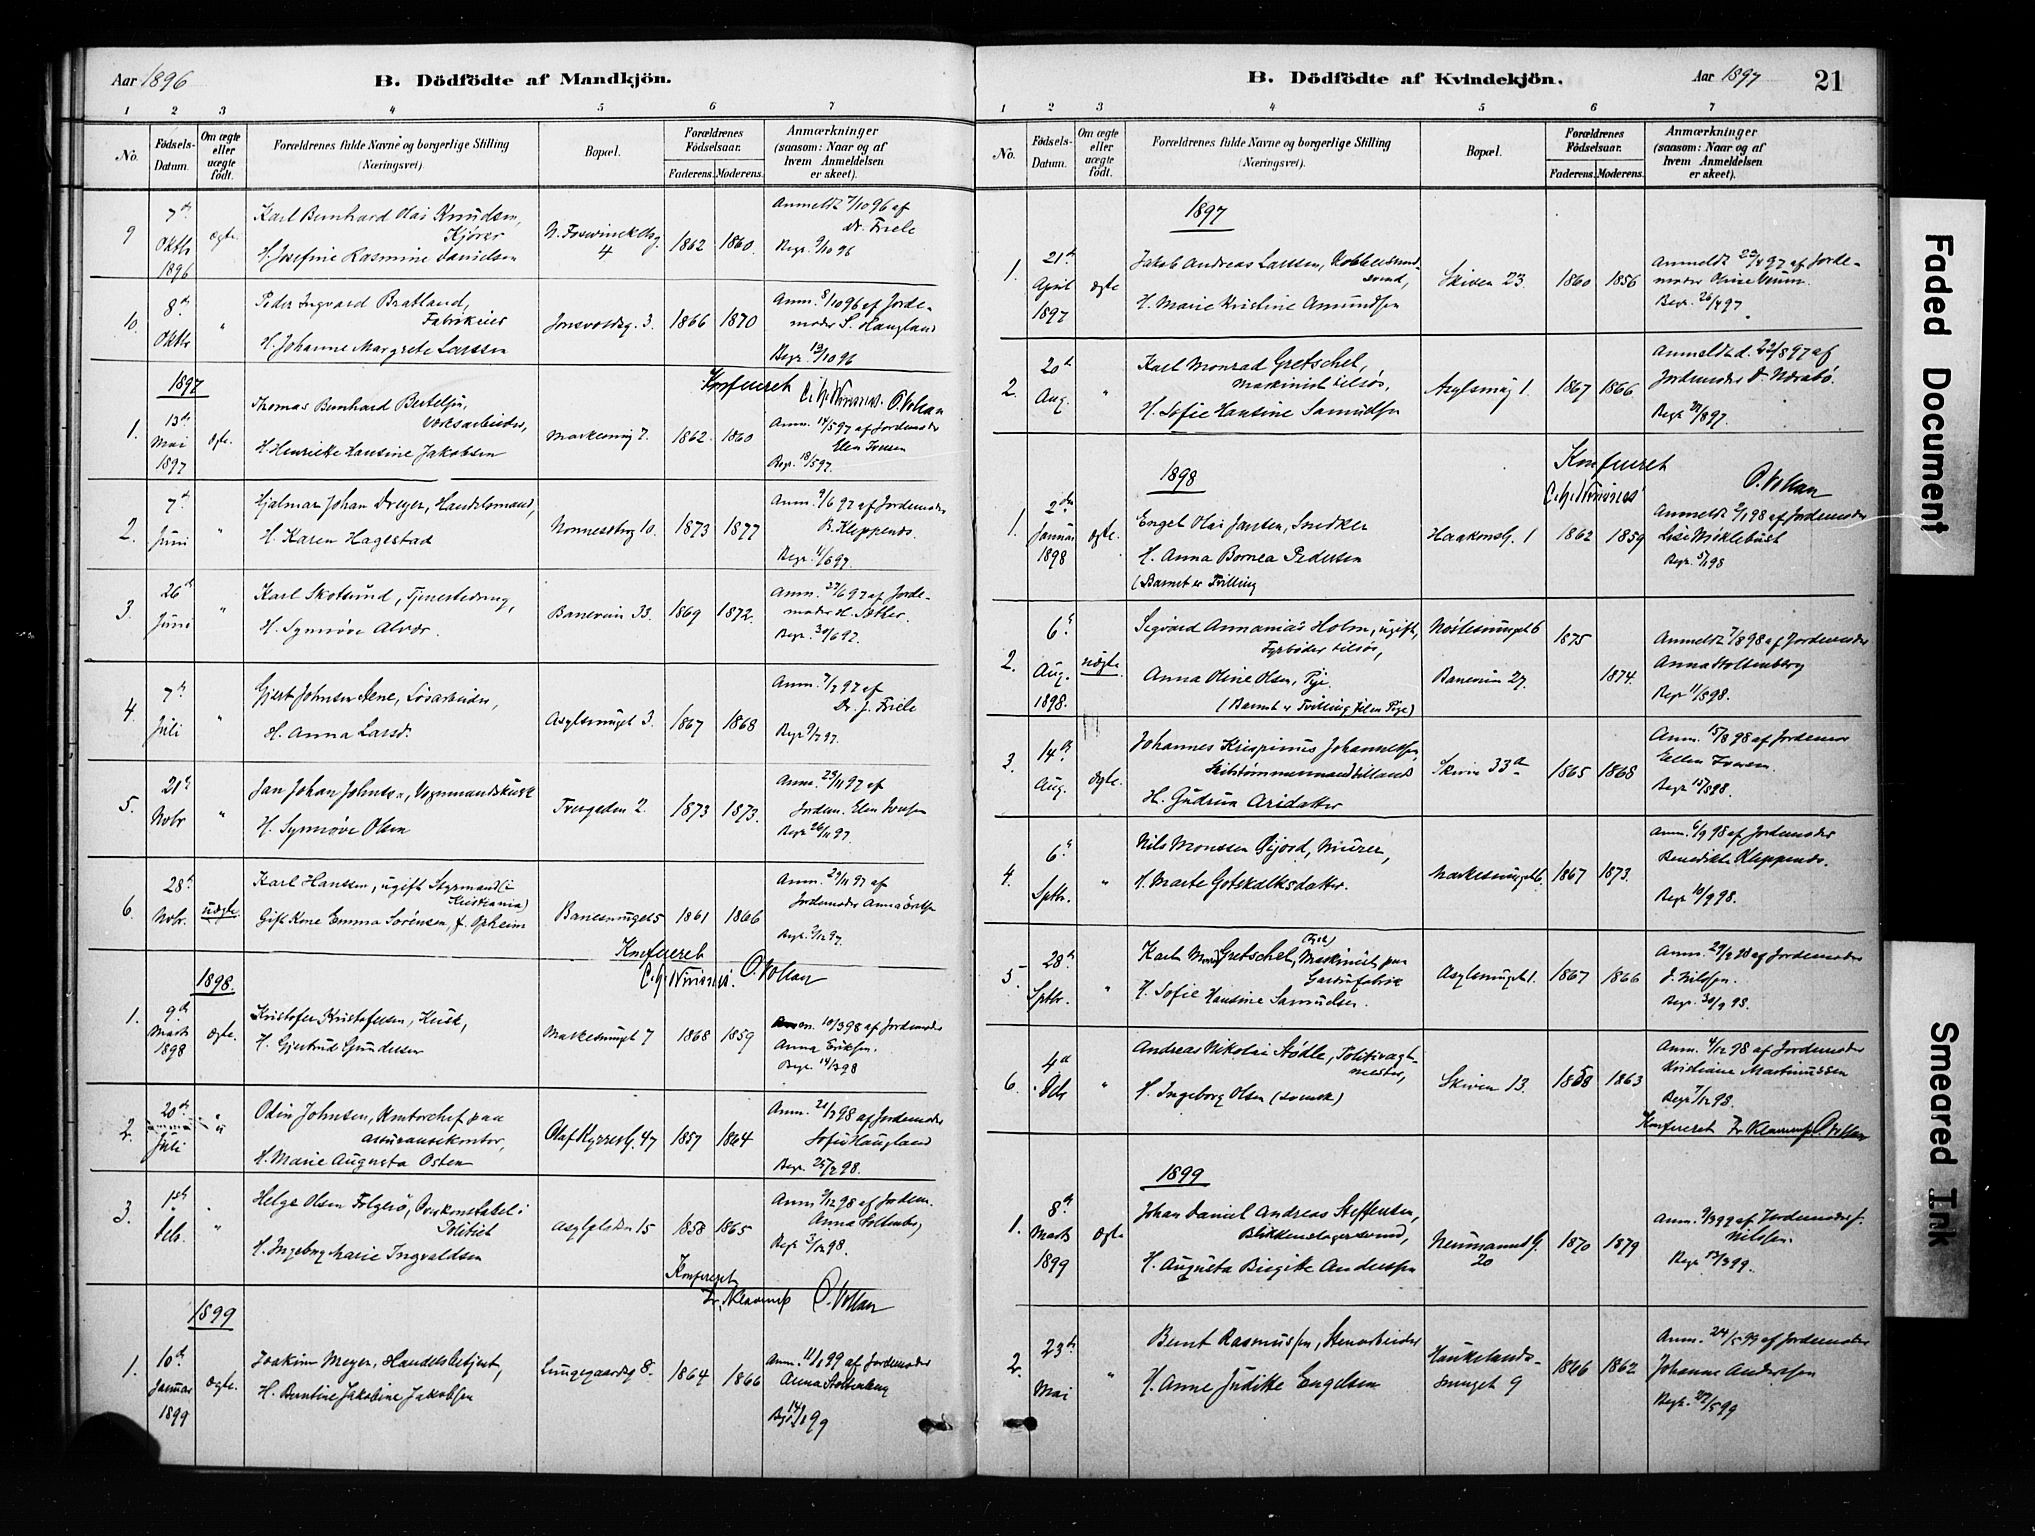 Aar 1896
B. Dödfödte af Mandkjön.
1 2 3 4 5 6 7
No.
Födsels-Datum.
Om ægte eller uægte födt.
Forældrenes fulde Navne og borgerlige Stilling (Næringsvei).
Bopæl.
Forældrenes Födselsaar.
Faderens. Moderens.
Anmærkninger (saasom: Naar og af hvem Anmeldelsen er skeet).
9 7de Oktbr 1896 ægte.
Karl Bernhard Olai Knudsen,
Kjører
H. Josefine Rasmine Danielsen
4
1862 1860
Anmeldt 7/10 96 af
Dr. Friele
Begr. 9/10 96
10. 8de Oktbr "
Peder Ingvard Bratland,
H. Johanne Margrete Larssen
Jonsvoldsg. 3. 1866 1870
Anm. 8/10 96 af Jorde-
moder S. Haugland
Begr. 13/10 96
Konfereret O. Vollan
1897
1. 13de Mai 1897 ægte.
Thomas Bernhard Bertelsen,
H. Henriette Hansine Jakobsen
Markesmug 7. 1862. 1860
Anm. 14/5 97 af Jordemoder
Elen Iversen
Begr. 18/5 97.
2. 7de Juni "
Hjalmar Johan Dreyer, Handelsmand,
H. Karen Hagestad
10. 1873 1877
Anm. 9/6 97 af Jordemoder
B. Kleppenes.
Begr. 11/6 97.
3. 26de Juni "
Karl Skotsund, Tjenestedreng,
H. Synnøve Alvær.
Baneveien 33. 1869 1872.
Anm. 27/6 97 af Jorde-
moder H. Sæther.
Begr. 30/6 97.
4 7de Juli "
Gjert Johnsen Lene, Løsarbeider,
H. Anna Larsd.
Asylsmuget 3. 1867 1868
Anm. 7/7 97 af
Dr. J. Friele
Begr 9/7 97.
5. 21de Novbr "
Jan Johan Johnsen, Vognmandskusk
H. Synnøve Olsen
Tvergaden 2. 1873 1873.
Anm. 23/11 97 af
Jordem. Elen Iversen
Begr. 26/11 97.
6. 28de Novbr. uægte.
Karl Hanssen, ugift Styrmand (i
Kristiania)
Gift Kone Emma Sørensen, f. Opheim
Banesmuget 5 1861 1866
Anm. 29/11 97 af
Jordemoder Anna
Begr. 2/12 97.
Konfereret
O. Vollan
1898.
1. 9de Marts 1898 ægte.
Kristofer Kristofersen, Kusk,
H. Gjertrud Gundersen
Markesmuget 7 1868 1859
Anm. 10/3 98 af Jordemoder
Anna Eriksen.
Begr. 14/3 98
2. 20de Juli "
Odin Johnsen, Kontorchef paa
assurancekontor,
H. Marie Augusta Osten
Olaf Kyrresg. 47 1857 1864
Anm. 21/7 98 af Jordemoder
Sofie Haugland
Begr. 25/7 98.
3. 1ste Debr. "
Helge Olsen Folgerø, Overkonstabel i
Politiet
H. Ingeborg Marie Ingvaldsen
15 1858 1865
Anm 2/12 98 af Jordem.
Anna Soltenberg
Begr 3/12 98.
Konfereret
O. Vollan
1899
1. 10de Januar 1899 ægte.
Joakim Meyer, Handelsbetjent,
H. Berntine Jakobine Jakobsen
Lungegaardsg 8. 1864 1866
Anm. 11/1 99 af Jordemoder
Anna Stoltenberg
Begr. 14/1 99
B. Dödfödte af Kvindekjön.
Aar 1897
21
1 2 3 4 5 6 7
No.
Födsels-Datum.
Om ægte eller uægte födt.
Forældrenes fulde Navne og borgerlige Stilling (Næringsvei).
Bopæl.
Forældrenes Födselsaar.
Faderens. Moderens.
Anmærkninger (saasom: Naar og af hvem Anmeldelsen er skeet).
1897
1. 21de April 1897 ægte
Jakob Andreas Larssen, Kobberslager-
svend,
H. Marie Kristine Amundsen
Skiven 23. 1860 1856
Anmeldt 22/4 97 af Jorde-
moder Oline Unum.
Begr. 26/4 97.
2. 20de Aug. "
Karl Monrad Gretschel,
Maskinist tilsøs,
H. Sofie Hansine Samuelsen
Asylsmug 1. 1867 1866
Anmeldt d. 22/8 97 af
Jordemoder D. Nærabø.
Begr. /8 97.
Konfereret
O. Vollan
1898
1. 2den Januar 1898 ægte.
Engel Olai Jansen, Snedker
H. Anna Bornea Pedersen
(Barnet er Tvilling
Haakonsg. 1 1862 1859
Anmeldt /1 98 af Jordemoder
Lise Myklebust
Begr. 5/1 98
2. 6te Aug. 1898. uægte
Sigvard Annanias Holm, ugift,
Fyrbøder tilsøs,
Anna Oline Olsen, Pige.
(Barnet er Tvilling, til en Pige)
Nøstesmuget 6 1875
Baneveien 27. 1874.
Anmeldt 7/8 98 af Jordemoder
Anna Stoltenberg
Begr 11/8 98.
3. 14de Aug. ægte.
Johannes Krispinus Johannessen
Skibstømmermand tillands
H. Gudrun Aridatter
Skiven 33a 1865 1868
Anm. 15/8 98 af Jordemor
Ellen Iversen.
Begr. 18/8 98.
4. 6te Septbr. "
Nils Monssen Øijord, Murer,
H. Marte Gotskalksdatter.
Markesmuget 6. 1867 1873.
Anm. 6/9 98 af Jordemoder
Benedikte Kleppenes.
Begr. 10/9 98.
5 28de Septbr. "
Karl Monr. Gretschel, (Tysk) Maskinist paa
H. Sofie Hansine Samuelsen.
Asylsmuget 1. 1867 1866
Anm. 29/9 98 af Jordemoder
J. Nilssen.
Begr. 30/9 98.
6. 4de Debr "
Andreas Nikolai Stødle, Politivagt-
mester,
H. Ingeborg Olsen (svensk)
Skiven 13. 1858 1863
Anm. 4/12 98 af Jordemoder
Kristiane Martinussen
Begr. 7/12 98.
Konfereret O. Vollan
1899
1. 8de Marts 1899 ægte
Johan Daniel Andreas Steffensen,
Blikkenslagersvend,
H. Augusta Birgitte Anderssen
Neumannsg. 20 1870 1879
Anm. 9/3 99 af Jordemoder J.
Nilssen.
Begr 13/3 99.
2. 23de Mai "
Bernt Rasmussen, Stenarbeider
H. Anne Juditte Engelsen
Haukelands-
smuget 9 1866 1862
Anm. 24/5 99 af Jordemoder
Johanne Andersen
Begr. 27/5 99
Faded Document
Smeared Ink